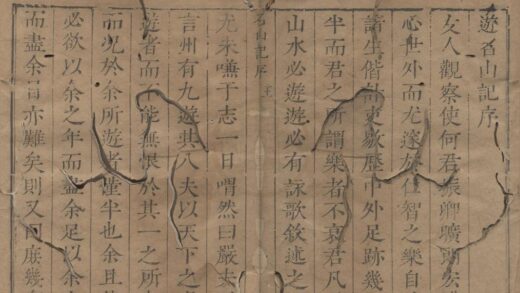 遊名山記序
友人觀察使何君振卿曠爾宏
心世外而尤邃於仁智之樂自
諸生偕計吏敭歷中外足跡幾
半而君之所謂樂者不衰君凡
山水必遊遊必有詠歌敘述之
名山記序 王
尤未嗛于志一日喟然曰嚴夫
言州有九遊其八夫以天下之
遊者而不能無恨於其一之所
而況於余所遊者僅半也余且
必欲以余之年而盡余足以余
而盡余目亦難矣則又曰庶幾